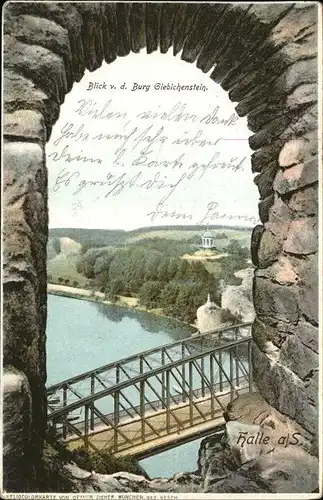 Blick v. d. Burg Giebichenstein.
Vielen, vielen Dank!
Habe mich sehr über
deine l. Karte gefreut
Es grüßt Dich
deine
Halle a/S.
HELIOCOLORKARTE VON OTTMAR ZIEHER, MÜNCHEN